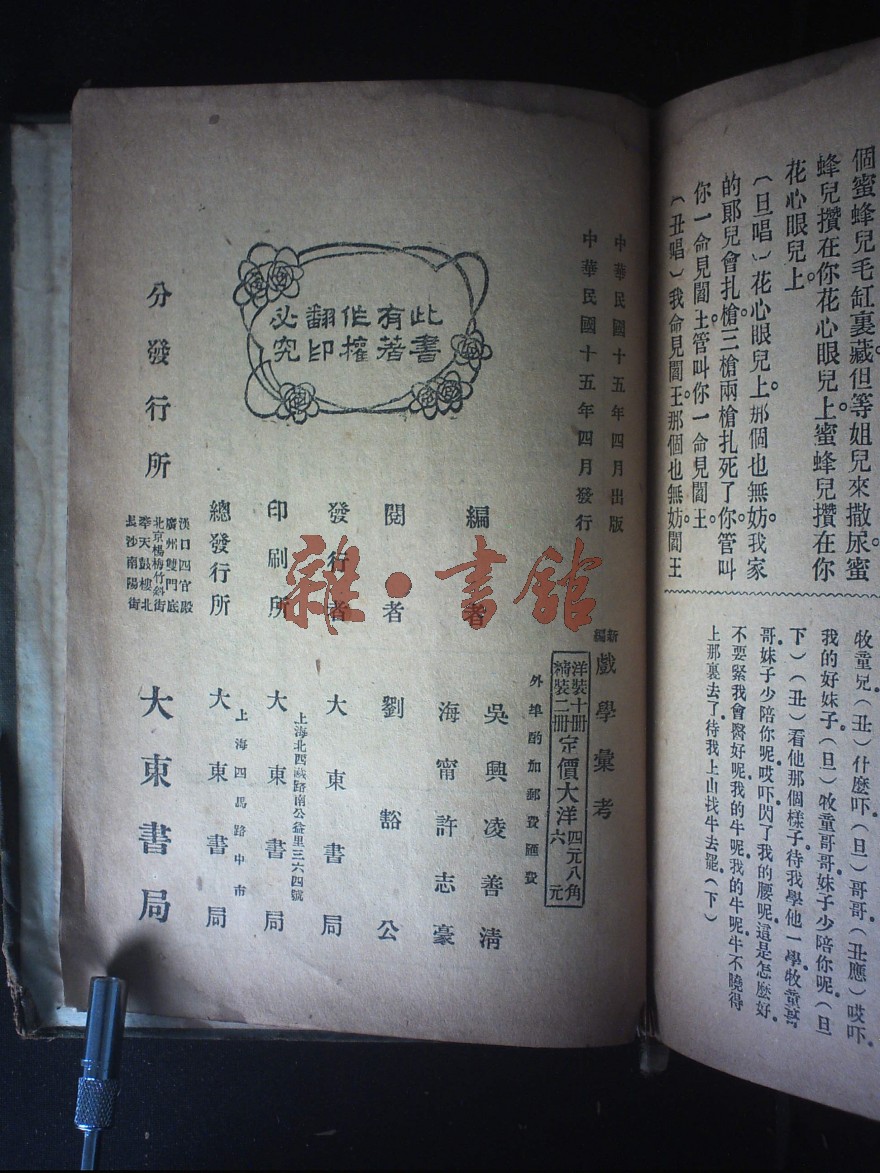 個蜜蜂兒毛缸裏藏。但等姐兒來撒尿蜜
蜂兒攢在你花心眼兒上。蜜蜂兒攢在你
花心眼兒上。
（旦唱）花心眼兒上。那個也無妨。我家
的郞兒會扎槍。三槍兩槍扎死了你。管叫
你一命見閻王。管叫你一命見閻王。
（丑唱）我命見閻王。那個也無妨。閻王
牧童兒（丑）什麼吓（旦）哥哥（丑應）哎吓。
我的好妹子（旦）牧童哥哥妹子少陪你呢。（旦
下）（丑）看他那個樣子。待我學他一學。牧童哥
哥妹子少陪你呢。哎吓閃了我的腰呢。這是怎麼好。
不要緊我會醫。好呢。我的牛呢。我的牛呢。牛不曉得
上那裏去了。待我上山找牛去罷。（下）
中華民國十五年四月出版
中華民國十五年四月發行
此書
有著
作權
翻印
必究
新編戲學彙考
洋裝十冊定價大洋四元八角
精裝二冊定價大洋六元
外埠酌加郵費匯費
編者
吳興凌善清
海甯許志豪
閱者
劉豁公
發行者
大東書局
印刷所
上海北四川路南公益里三六四號
大東書局
總發行所
上海四馬路中市
大東書局
分發行所
漢口四官殿
廣州雙門底
北京楊梅竹斜街
奉天鼓樓北
長沙南陽街
大東書局
雜·書館